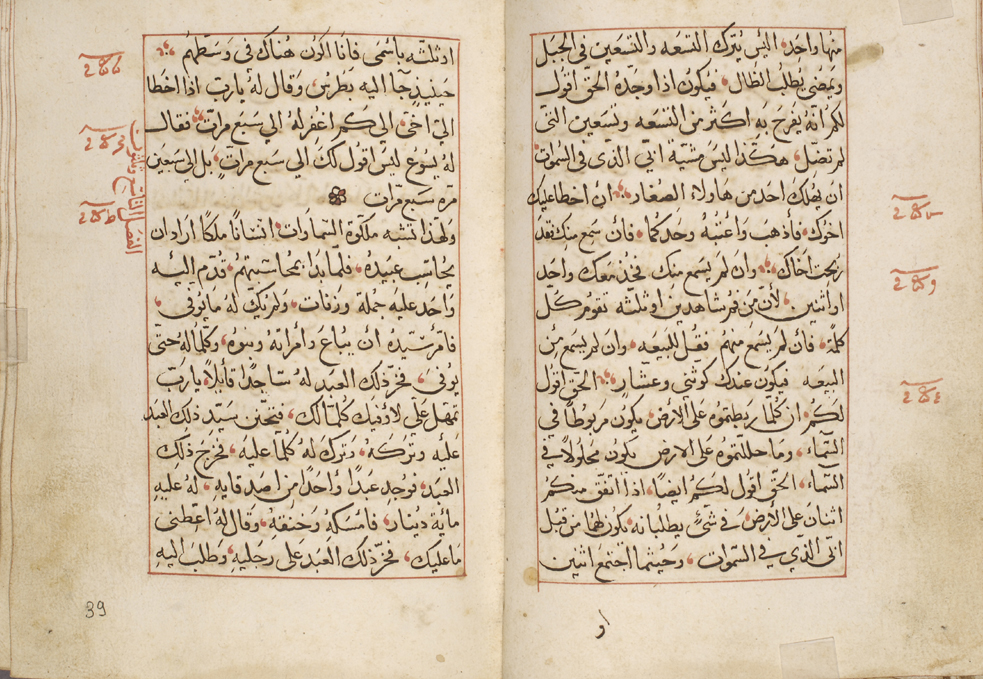 منها واحد، اليس يترك التسعه والتسعين في الجبل
ويمضي يطلب الظال، فيكون اذا وجده الحق اقول
لكم انه يفرح به اكثر من التسعه وتسعين التي
لم تضل، هكذا ليس مشية ابي الذي في السموات
ان يهلك احد من هاولاء الصغار، ان اخطا عليك
اخوك، فأذهب واعتبه وحدكما، فأن سمع منك فقد
ربحت اخاك، وان لم يسمع منك فخذ معك واحد
او اثنين، لأن من فم شاهدين او ثلثه تقوم كل
كلمة، فان لم يسمع منهم فقل للبيعه، وان لم يسمع من
البيعه فيكون عندك كوثني وعشار، الحق اقول
لكم، ان كلما ربطتموه على الارض، يكون مربوطاً في
السماء، وما حللتموه على الارض يكون محلولاً في
السماء، الحق اقول لكم ايضاً، اذا اتفق منكم
اثنان على الارض، في شئ يطلبانه يكون لهما من قبل
ابي الذي في السموات، وحيثما اجتمع اثنين
او
او ثلثه بأسمي فانا اكون هناك في وسطهم
حينيذ جا اليه بطرس، وقال له يارب اذا اخطا
الي اخي، الي كم اغفر له، الي سبع مرات، فقال
له يسوع ليس اقول لك الي سبع مرات، بل الي سبعين
مره سبع مرات
ولهذا تشبه ملكوة السماوات، انساناً ملكاً اراد ان
يحاسب عبيده، فلما بدا بمحاسبتهم، قدم اليه
واحد عليه جملة وزنات، ولم يكن له ما يوفي،
فامر سيده ان يباع وامراته وبنوه، وكلما له حتى
يوفى، فخر ذلك العبد له ساجداً قأيلاً، يارب
تمهل علي لاوفيك كلما لك، فتحنن سيد ذلك العبد
عليه وتركه، وترك له كلما عليه، فخرج ذلك
العبد، فوجد عبداً واحداً من اصدقايه، له عليه
ماية دينار، فامسكه وخنقه، وقال له اعطني
ما عليك، فخر ذلك العبد على رجليه، وطلب اليه
الفصل التاسع وثلثون
39